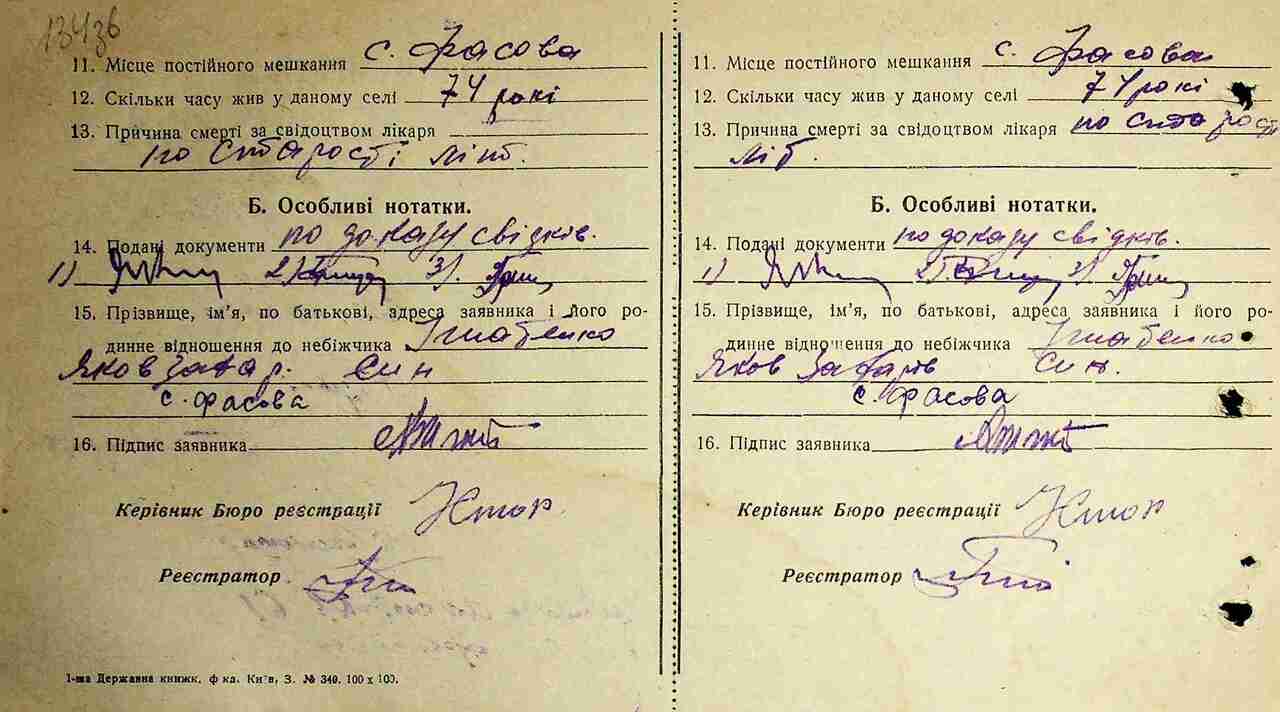 13436
11. Місце постійного мешкання с. Фасова
12. Скільки часу жив у даному селі 74 рокі
13. Причина смерті за свідоцтвом лікаря
по старості літ.
Б. Особливі нотатки.
14. Подані документи по доказу свідків.
1) 2) 3).
15. Прізвище, ім'я, по батькові, адреса заявника і його ро-
динне відношення до небіжчика Ігнатенко
Яков Захар. син
с. Фасова
16. Підпис заявника
Керівник Бюро реєстрації
Реєстратор
1-ша Державна книжк. ф-ка, Київ, З. № 340. 100 х 100.
11. Місце постійного мешкання с. Фасова
12. Скільки часу жив у даному селі 74 рокі
13. Причина смерті за свідоцтвом лікаря по старості
літ.
Б. Особливі нотатки.
14. Подані документи по доказу свідків.
1) 2) 3).
15. Прізвище, ім'я, по батькові, адреса заявника і його ро-
динне відношення до небіжчика Ігнатенко
Яков Захарів син.
с. Фасова
16. Підпис заявника
Керівник Бюро реєстрації
Реєстратор